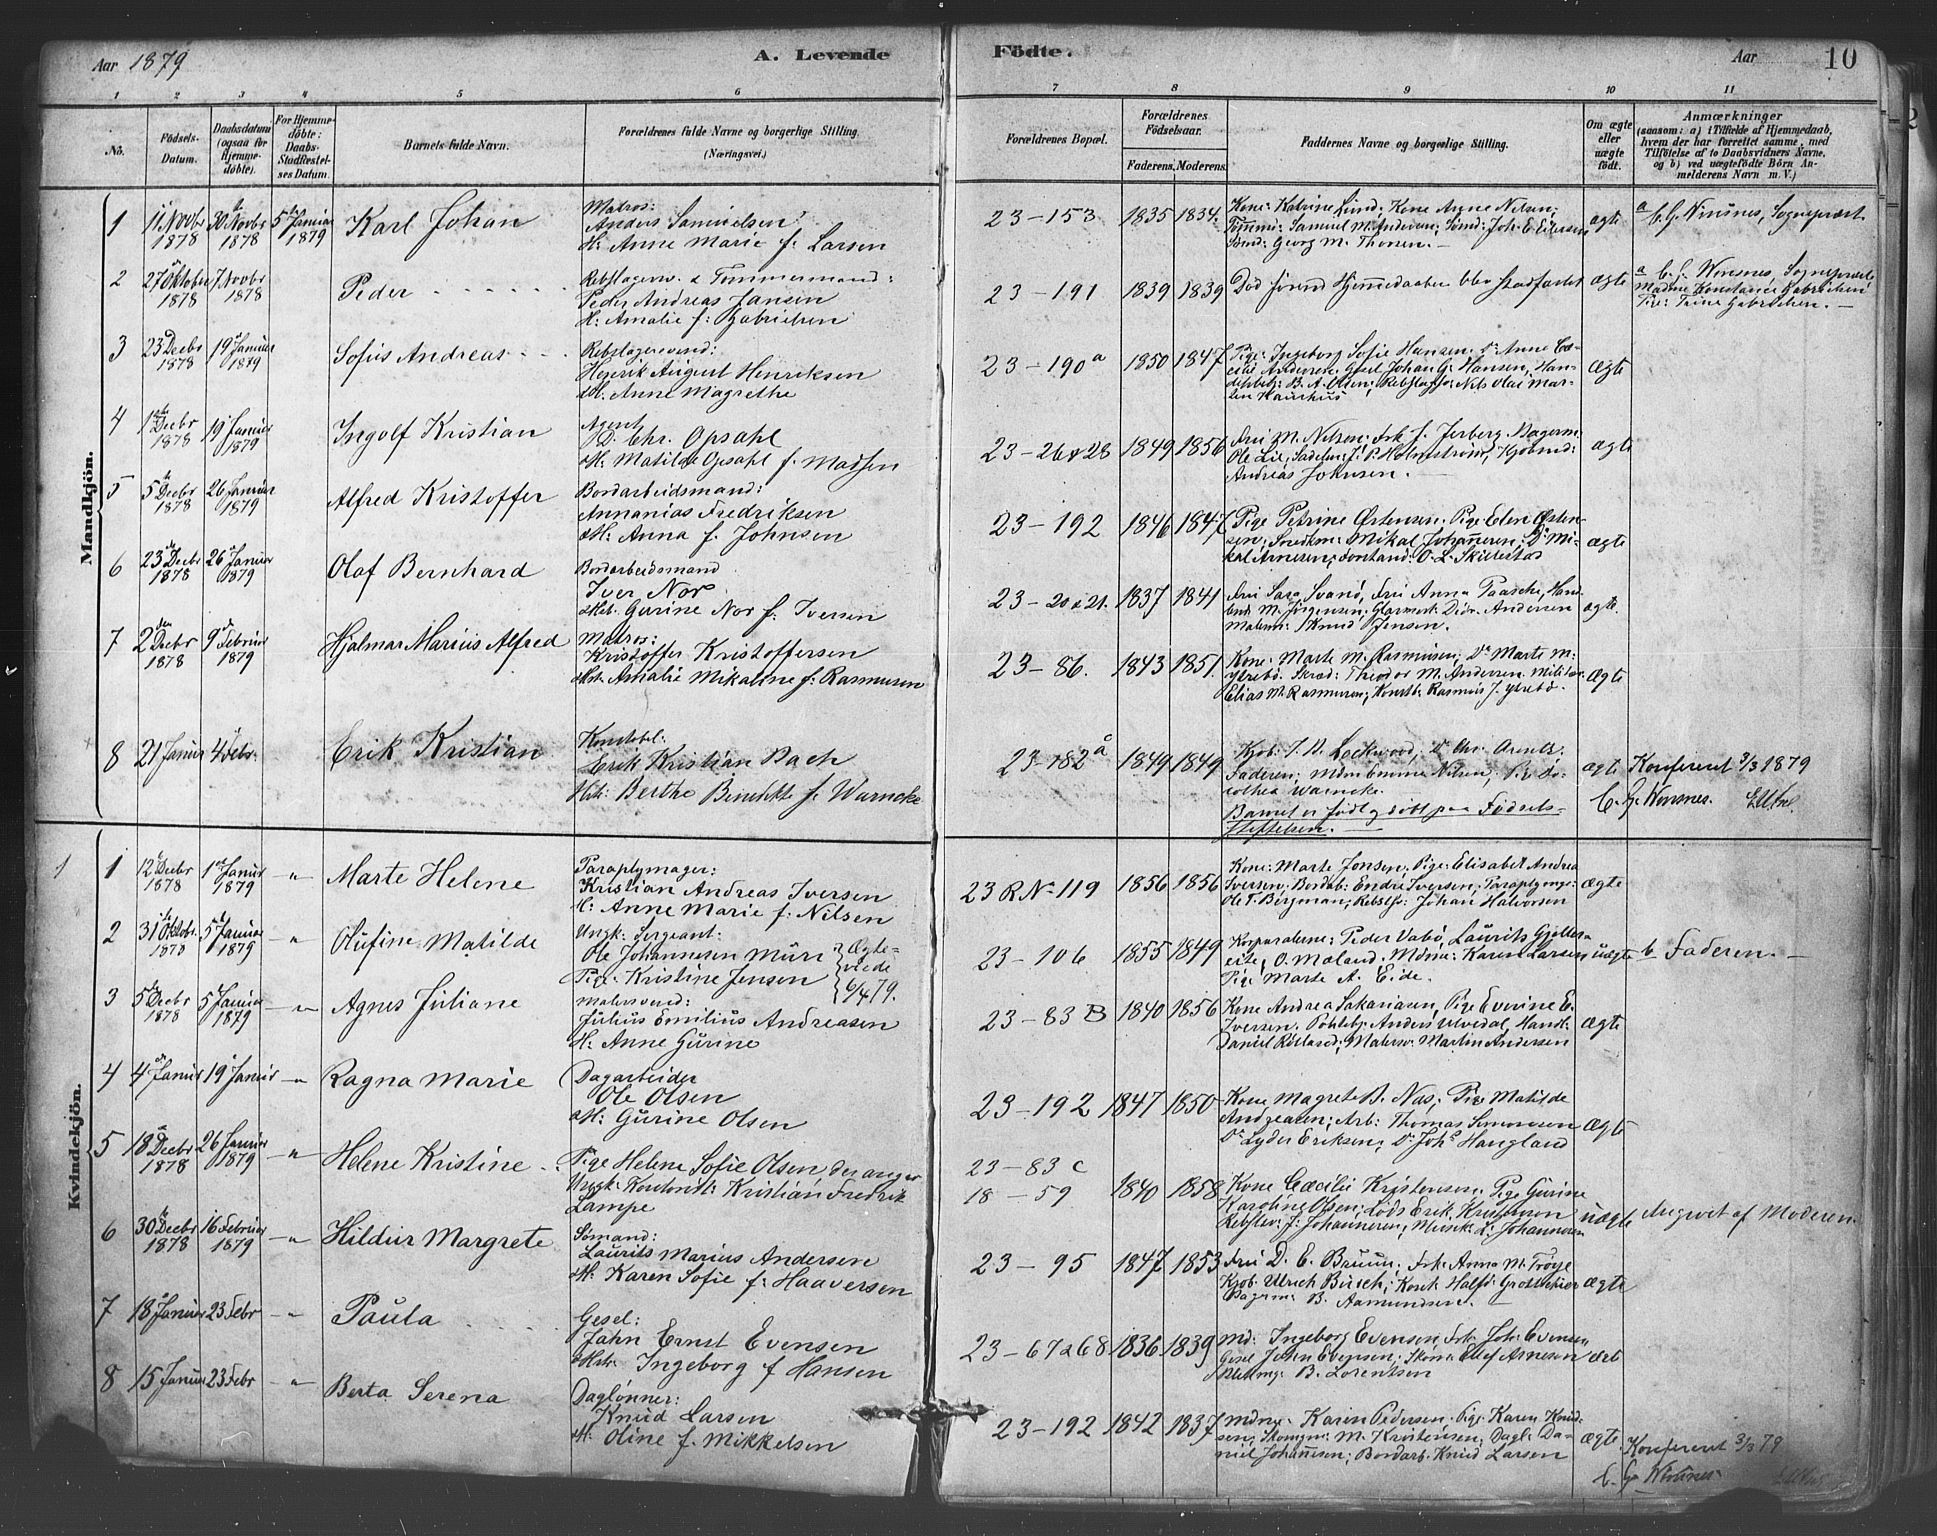 Aar 1879 A. Levende Födte. Aar 10
1 2 3 4 5 6 7 8 9 10 11
No.
Födsels-
Datum.
Daabsdatum
(ogsaa for
Hjemme-
döbte).
For Hjemme-
döbte:
Daabs-
Stadfæstel-
ses Datum.
Barnets fulde Navn.
Forældrenes fulde Navne og borgerlige Stilling.
(Næringsvei.)
Forældrenes Bopæl.
Forældrenes
Födselsaar.
Faderens. Moderens.
Faddernes Navne og borgerlige Stilling.
Om ægte
eller
uægte
födt.
Anmærkninger
(saasom: a) i Tilfælde af Hjemmedaab,
hvem der har forrettet samme, med
Tilföielse af to Daabsvidners Navne,
og b) ved uægtefödte Börn An-
melderens Navn m. V.)
Mandkjön.
1 11 Novbr 1878 30 Novbr 1878 5 Januar 1879 Karl Johan
Matros:
Anders Samuelsen
H. Anne Marie f. Larsen
23-153 1835 1834.
Kone: Katrine Lund; Kone Anne Nilsen;
Tömmm: Samuel M. Andersen; Sömd: Joh. E. Eilersen
Sömd: Georg M. Thonsen. -
ægte
a C. G. Winsnes, Sognepræst
2 27 Oktober 1878 7 Novbr 1878 Peder
Rebslagersv. & Tömmermand:
Peder Andreas Jansen
H. Amalie f: Gabrielsen
23-191 1839 1839
Död förend Hjemmedaaben blev stadfæstet
ægte
a C. G. Winsnes, Sognepræst
Madme Konstance Gabrielsen
Pige: Trine Gabrielsen. -
3 23 Decbr 1878 19 Januar 1879 Sofus Andreas
Rebslagersvend:
Henrik August Henriksen
H. Anne Magrethe
23-190 a 1850 1847
Pige: Ingeborg Sofie Hansen. Do Anne Cæ-
cilie Andersen. Gsel Johan G. Hansen, Han-
delsbetj: B. A. Olsen; Rebslagsv: Nils Olai Mar-
ægte
4 1 Decbr 1878 19 Januar 1879 Ingolf Kristian
Agent
D. Chr. Opsahl
H. Matilde Opsahl f. Madsen
23-26 & 28 1849 1856
Fru M. Nilsen; Frk f. Jerberg. Bagerm:
Ole Lie, Sadelm: J. P. Holmström, Kjöbmd:
Andreas Johnsen. -
ægte
5 5 Decbr 1878 26 Januar 1879 Alfred Kristoffer
Bordarbeidsmand:
Annanias Fredriksen
H. Anna f. Johnsen
23-192 1846 1847
Pige Petrine Östensen. Pige Elen Östen-
sen; Snedkm: Mikal Johannesen; Do Mi-
kal Arnesen;
ægte
6 23 Decbr 1878 26 Januar 1879 Olaf Bernhard
Bordarbeidsmand
Iver Nor
Hst. Gurine Nor f. Iversen
23-20 & 21. 1837 1841
Fru Sara Svanö, Fru Anna Paasche, Han-
M. Jörgensen; Glarmest: Didr. Andersen
Malerm: Knud Jensen.
ægte.
7 2 Decbr 1878 9 Februar 1879 Hjalmar Marius Alfred
Matros:
Kristoffer Kristoffersen
Hst. Amalie Mikaline f. Rasmusen
23-86. 1843 1851.
Kone: Marte M. Rasmusen; Do Marte M.
Ystebö. Skræd: Theodor M. Andersen Militær
Elias M. Rasmusen; Konstb: Rasmus J. Ystebö.
ægte
8 21 Januar 4 Febr. Erik Kristian
Konstabel:
Erik Kristian Bach
Hst: Berthe Benedikte f. Warncke
23-182 a 1849 1849
Kjöb: T. D. Lockwood, Do Chr. Arentz.
Faderen; Mdm Emma Nilsen, Pige Do-
rothea Warncke.
Barnet er födt og döbt paa Födsels-
stiftelsen. -
ægte
Konfereret 3/3 1879
C. G. Winsnes.
Kvindekjön.
1 12 Decbr 1878 1 Januar 1879 - " - Marte Helene
Paraplymager:
Kristian Andreas Iversen
H. Anne Marie f. Nilsen
23 R No 119 1856 1856
Kone: Marte Jonsen, Pige Elisabet Andrea
Iversen; Bordab: Endre Iversen; Paraplymgr:
Ole T. Bergman; Rebslsv: Johan Halvorsen
ægte
2 31 Oktobr. 1878 5 Januar 1879 - " - Olufine Matilde
Ungk: Sergeant:
Ole Johannesen Muri
Pige: Kristine Jensen
Ægte-
viede
6/4 79.
23-106 1855 1849
Korporalerne: Peder Vabö, Laurits Gjelles-
O. Moland. Mdme: Karen Larsen
Pige Marte A. Eide.
uægte
b Faderen. -
3 5 Decbr 1878 5 Januar 1879 - " - Agnes Juliane
Malersvend:
Julius Emilius Andreasen
H. Anne Gurine
23-83 B 1840 1856
Kone Andrea Sakariasen, Pige Everine E.
Iversen. Anders Ulvedal, Handl:
Daniel Röiland; Malersv: Martin Andersen
ægte
4 4 Januar 19 Januar - " - Ragna Marie
Dagarbeider
Ole Olsen
H: Gurine Olsen
23-192 1847 1850
Kone Magrete B. Nas; Pige Matilde
Andreasen; Arb: Thomas Simonsen
Do Lyder Eriksen; Do Johs Haugland
ægte
5 18 Decbr 1878 26 Januar 1879 - " - Helene Kristine
Pige Helene Sofie Olsen der anger
Ungk: Kristian Fredrik
Lampe
23-83 c
18-59 1840 1858
Kone Cæcilie Kristensen. Pige Gurine
Karoline Olsen; Lods Erik Kristensen
Rebslsv: J: Johannesen, Musik: L. Johannesen
uægte
Angivet af Moderen.
6 30 Decbr 1878 16 Februar 1879 - " - Hildur Margrete
Sömand:
Laurits Marius Andersen
H. Karen Sofie f. Haaversen
23-95 1847 1853
Fru D. E. Bauun; Frk Anna M. Tröye
Kjöb. Ulrich Busch;
Bagerm: B. Aamundsen. -
ægte
7 18 Januar 23 Febr - " - Paula
Gesel:
John Ernst Evensen
Hstr. Ingeborg f Hansen
23-67 a 68 1836 1839
Md: Ingeborg Evensen, Frk: Joh: Evensen
Gesel John Evensen; Skom: Ellef Arnesen
B. Lorentsen
ægt
8 15 Januar 23 Febr - " - Berta Serena
Daglönner:
Knud Larsen
H. Oline f. Mikkelsen
23-192 1842 1837
Mdme Karen Pedersen, Pige Karen Knud-
sen; Skomgm: M. Kristensen; Dagl: Da-
niel Johannesen; Bordarb. Knud Larsen
ægte
Konfereret 3/3 79
C. G. Winsnes